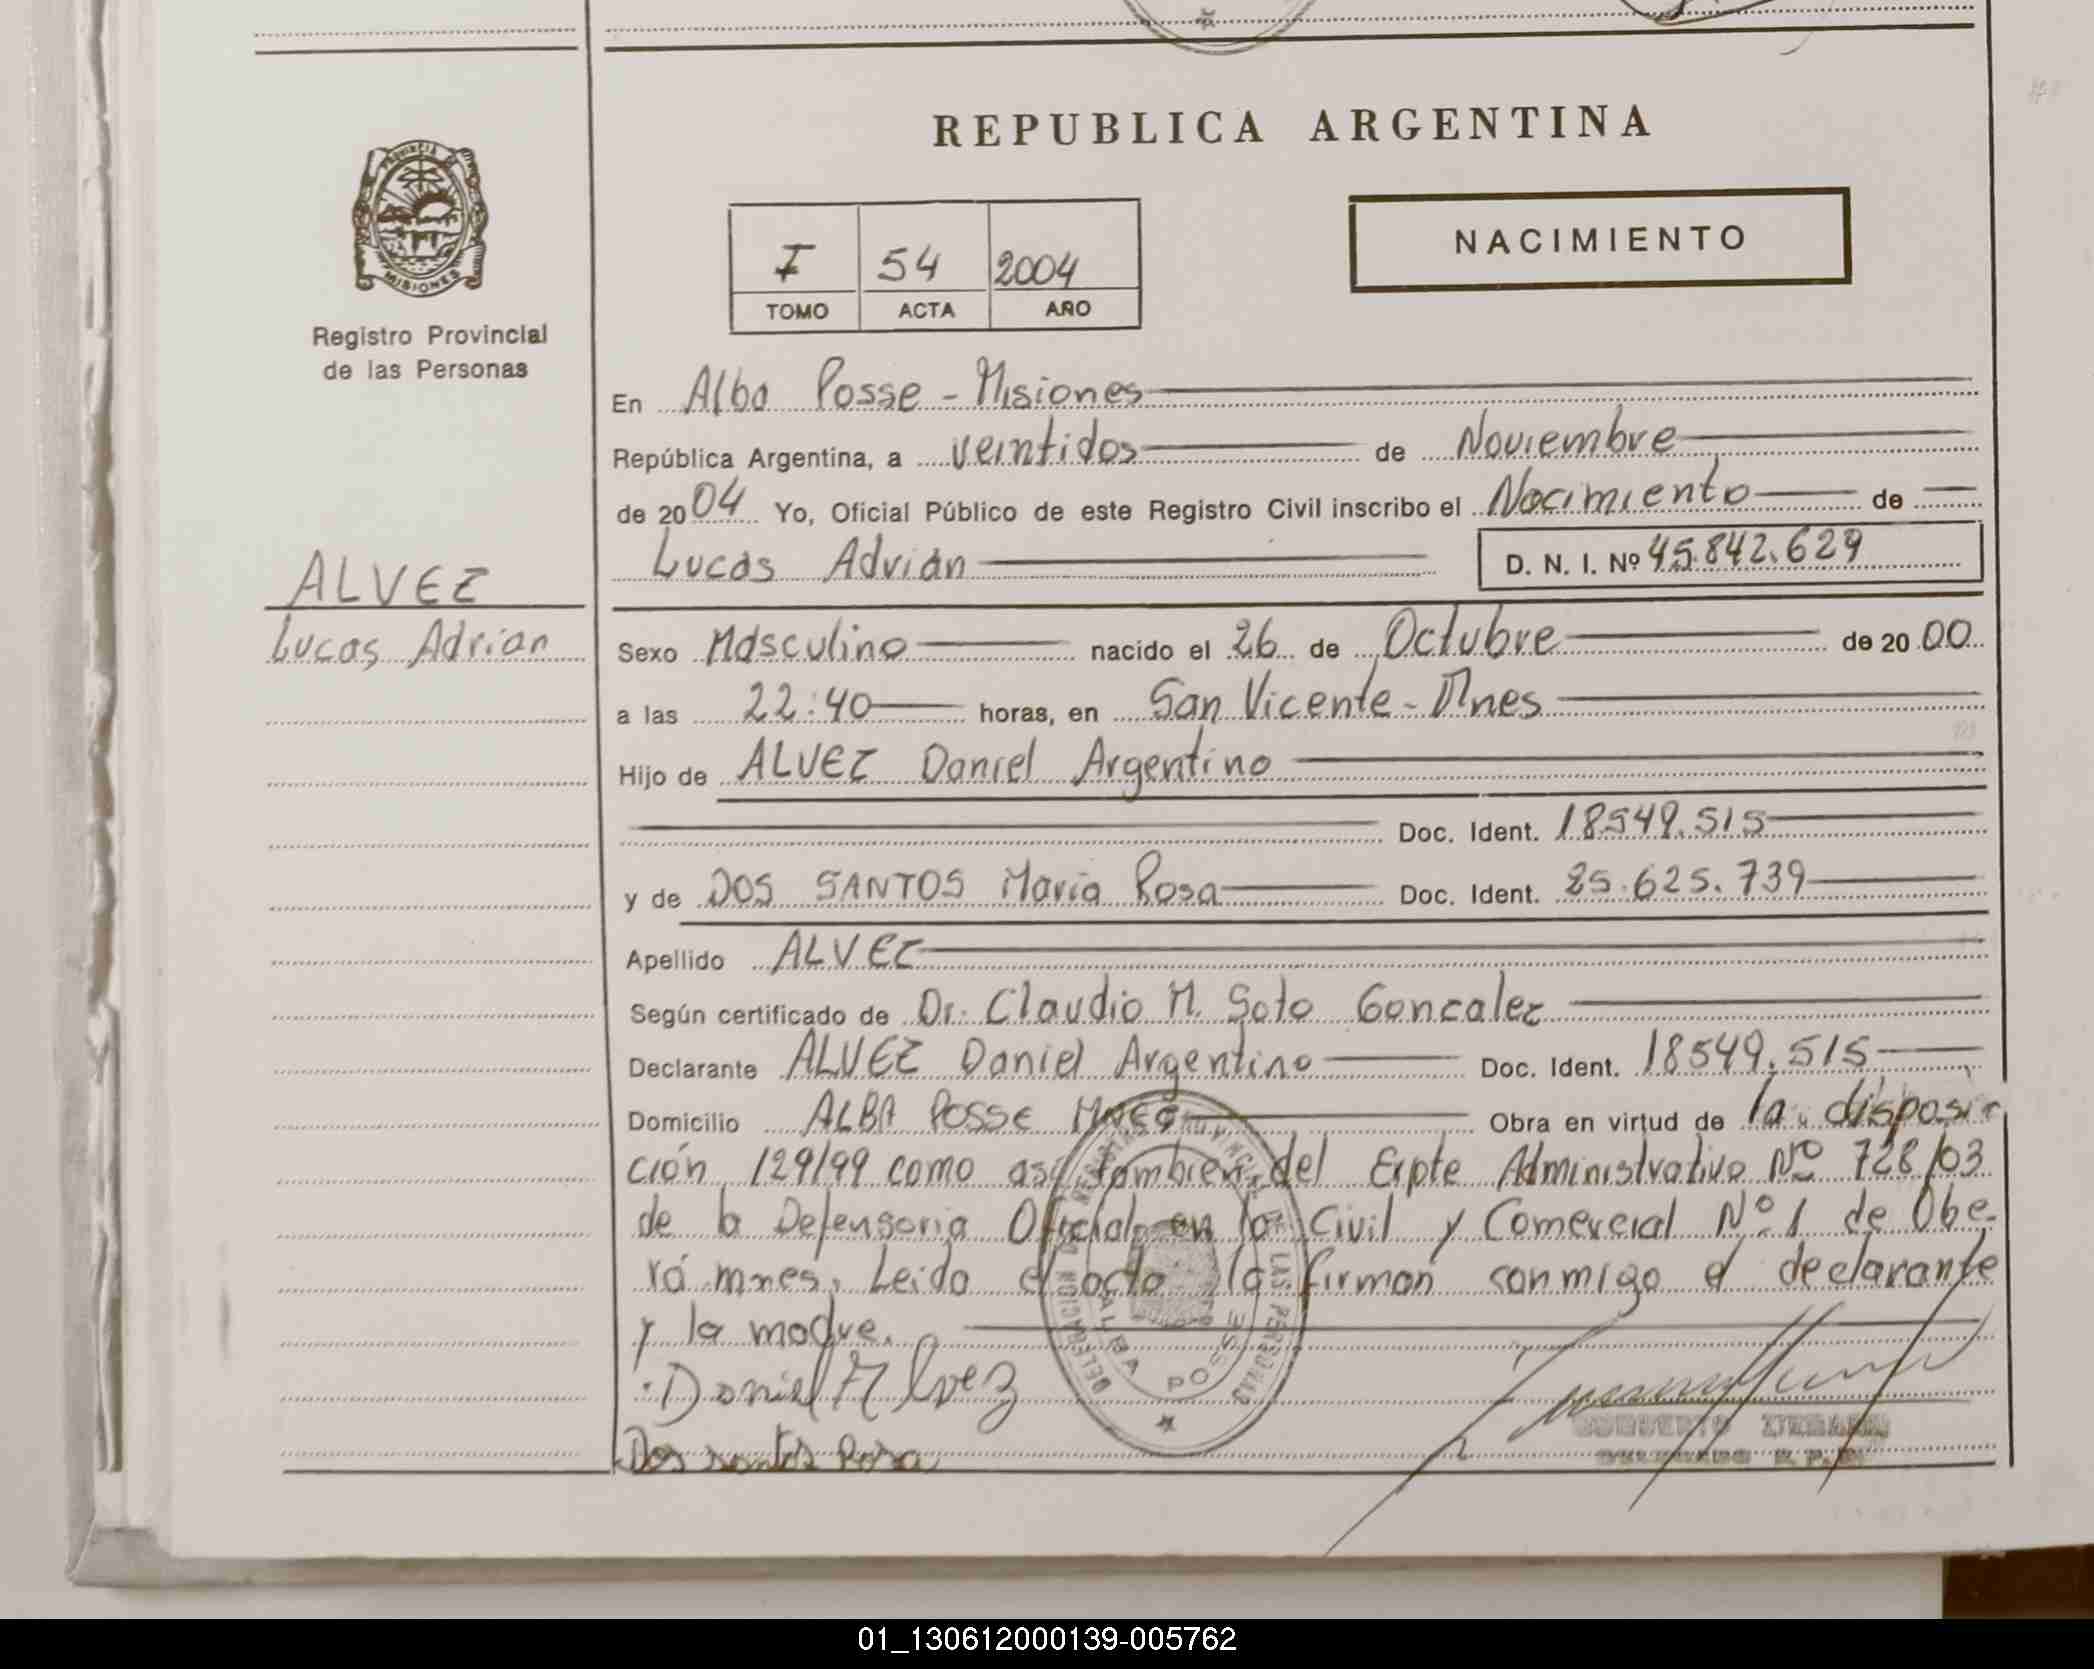 REPUBLICA ARGENTINA
PROVINCIA DE
MISIONES
Registro Provincial
de las Personas
I 54 2004
TOMO ACTA AÑO
NACIMIENTO
En Alba Posse - Misiones
República Argentina, a veintidos de Noviembre
de 2004 Yo, Oficial Público de este Registro Civil inscribo el Nacimiento de
Lucas Adrián D. N. I. Nº 45.842.629
ALVEZ
Lucas Adrian
Sexo Masculino nacido el 26 de Octubre de 2000
a las 22:40 horas, en San Vicente - Mnes
Hijo de ALVEZ Daniel Argentino
Doc. Ident. 18549.515
y de DOS SANTOS Maria Rosa Doc. Ident. 25.625.739
Apellido ALVEZ
Según certificado de Dr. Claudio M. Soto Gonzalez
Declarante ALVEZ Daniel Argentino Doc. Ident. 18549.515
Domicilio ALBA POSSE MNES Obra en virtud de la disposi
ción 129/99 como así tambien del Expte Administrativo Nº 728/03
de la Defensoria Oficial en lo Civil y Comercial Nº 1 de Obe-
rá mnes. Leida el acta la firman conmigo el declarante
y la madre.
REGISTRO PROVINCIAL DE LAS PERSONAS
DELEGACION
ALBA POSSE
Daniel Alvez
Dos santos Rosa
01_130612000139-005762